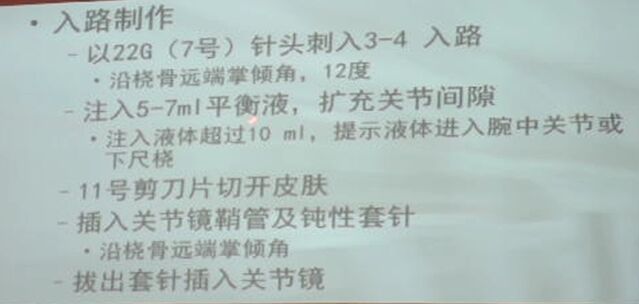 • 入路制作
– 以22G（7号）针头刺入3-4 入路
• 沿桡骨远端掌倾角，12度
– 注入5-7ml平衡液，扩充关节间隙
• 注入液体超过10 ml，提示液体进入腕中关节或
下尺桡
– 11号剪刀片切开皮肤
– 插入关节镜鞘管及钝性套针
• 沿桡骨远端掌倾角
– 拔出套针插入关节镜